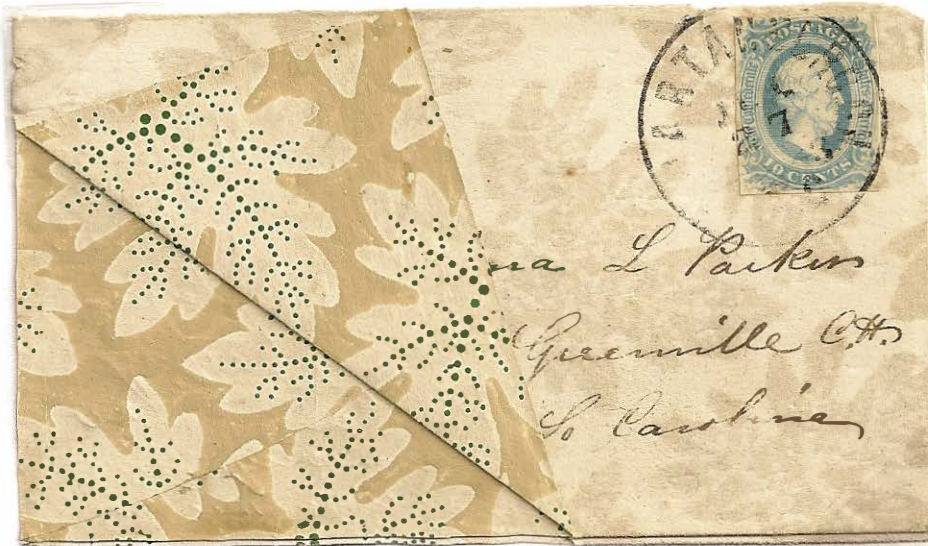 POSTAGE
10 CENTS
7
na L Parkins
Greenville C.H.
So Carolina